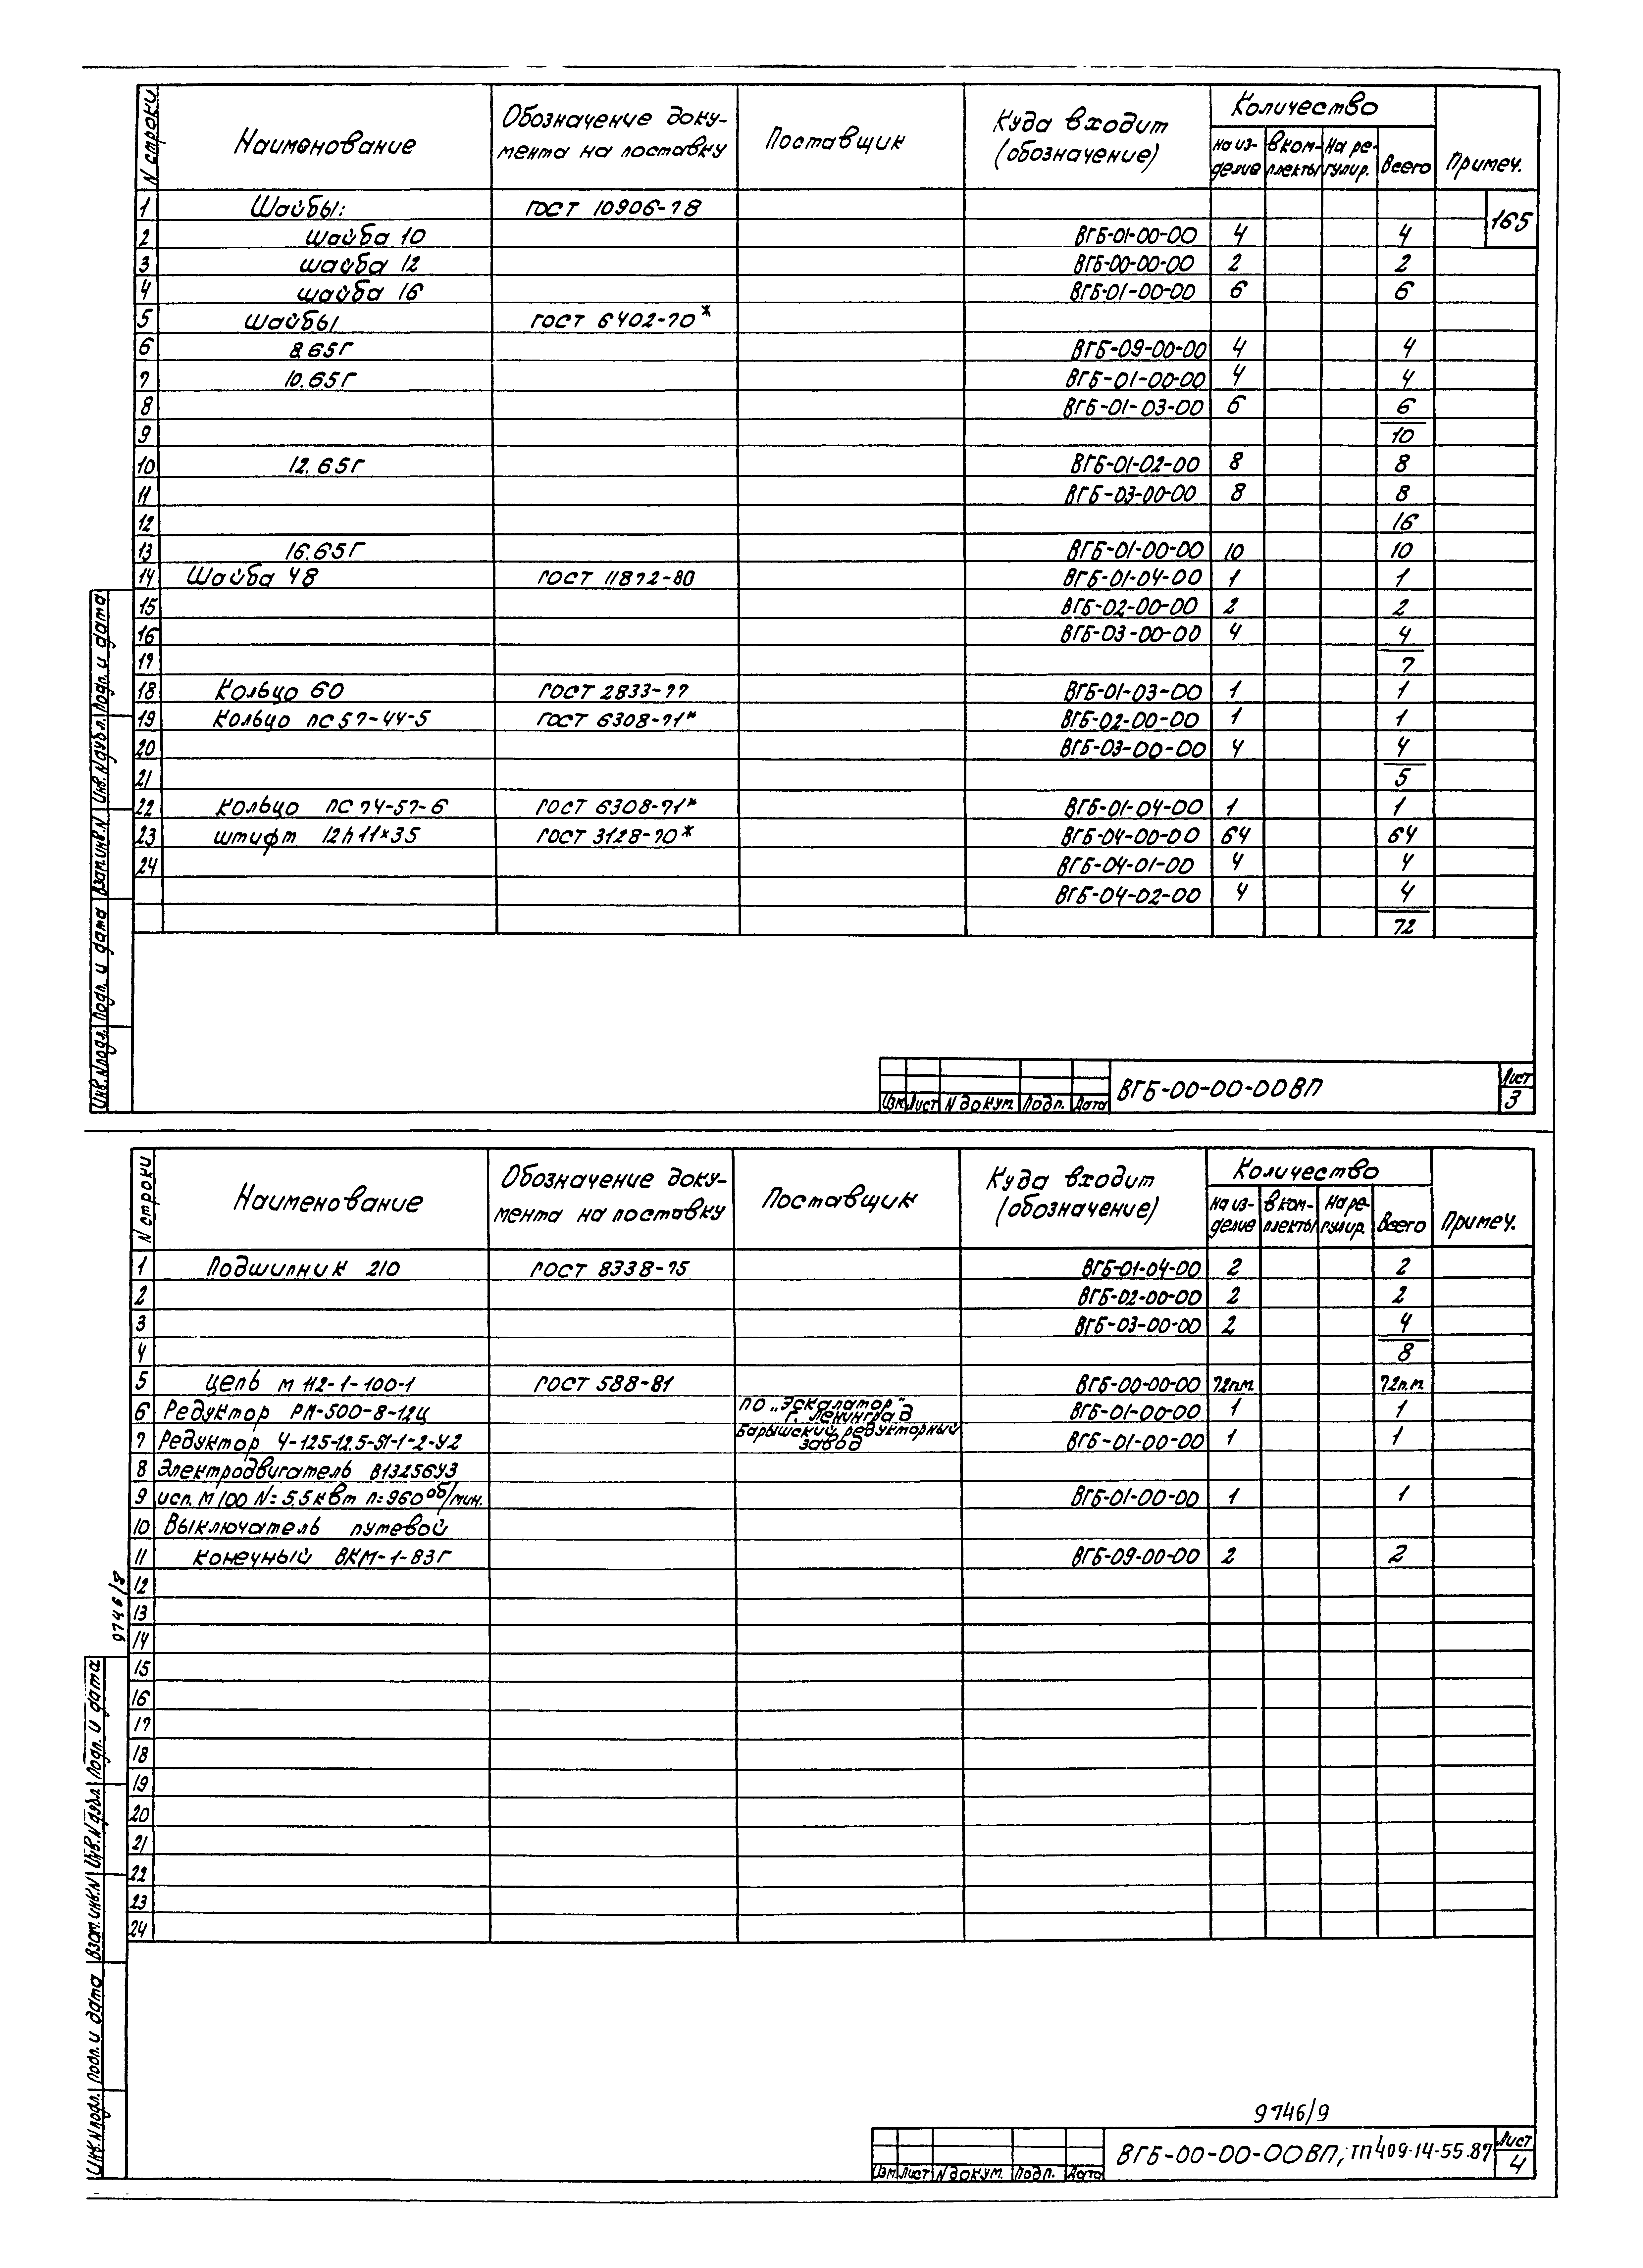 N строки Наименование Обозначение доку-мента на поставку Поставщик Куда входит (обозначение) Количество на из-делие в ком-плекты на ре-гулир. Всего Примеч.
165
1 Шайбы: ГОСТ 10906-78
2 шайба 10 ВГБ-01-00-00 4 4
3 шайба 12 ВГБ-00-00-00 2 2
4 шайба 16 ВГБ-01-00-00 6 6
5 Шайбы ГОСТ 6402-70*
6 8.65Г ВГБ-09-00-00 4 4
7 10.65Г ВГБ-01-00-00 4 4
8 ВГБ-01-03-00 6 6
9 10
10 12.65Г ВГБ-01-02-00 8 8
11 ВГБ-03-00-00 8 8
12 16
13 16.65Г ВГБ-01-00-00 10 10
14 Шайба 48 ГОСТ 11872-80 ВГБ-01-04-00 1 1
15 ВГБ-02-00-00 2 2
16 ВГБ-03-00-00 4 4
17 7
18 Кольцо 60 ГОСТ 2833-77 ВГБ-01-03-00 1 1
19 Кольцо ПС 57-44-5 ГОСТ 6308-71* ВГБ-02-00-00 1 1
20 ВГБ-03-00-00 4 4
21 5
22 Кольцо ПС 74-57-6 ГОСТ 6308-71* ВГБ-01-04-00 1 1
23 штифт 12h11×35 ГОСТ 3128-70* ВГБ-04-00-00 64 64
24 ВГБ-04-01-00 4 4
ВГБ-04-02-00 4 4
72
Инв.Nподл. Подп. и дата Взам.инв.N Инв.Nдубл. Подп. и дата
Изм. Лист N докум. Подп. Дата
ВГБ-00-00-00ВП
Лист
3
N строки Наименование Обозначение доку-мента на поставку Поставщик Куда входит (обозначение) Количество на из-делие в ком-плекты на ре-гулир. Всего Примеч.
1 Подшипник 210 ГОСТ 8338-75 ВГБ-01-04-00 2 2
2 ВГБ-02-00-00 2 2
3 ВГБ-03-00-00 2 4
4 8
5 Цепь М 112-1-100-1 ГОСТ 588-81 ВГБ-00-00-00 72п.м. 72п.м.
6 Редуктор РМ-500-8-12Ц ПО „Эскалатор" г. Ленинград ВГБ-01-00-00 1 1
7 Редуктор Ч-125-12.5-51-1-2-У2 Барышский редукторный завод ВГБ-01-00-00 1 1
8 Электродвигатель В132S6У3
9 исп. М100 N=5,5квт n=960об/мин. ВГБ-01-00-00 1 1
10 Выключатель путевой
11 конечный ВКМ-1-83г ВГБ-09-00-00 2 2
12
13
14
15
16
17
18
19
20
21
22
23
24
9746/9
Инв.Nподл. Подп. и дата Взам.инв.N Инв.Nдубл. Подп. и дата
9746/9
Изм. Лист N докум. Подп. Дата
ВГБ-00-00-00ВП; ТП 409-14-55.87
Лист
4